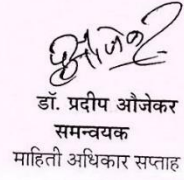 डॉ. प्रदीप औजेकर
समन्वयक
माहिती अधिकार सप्ताह